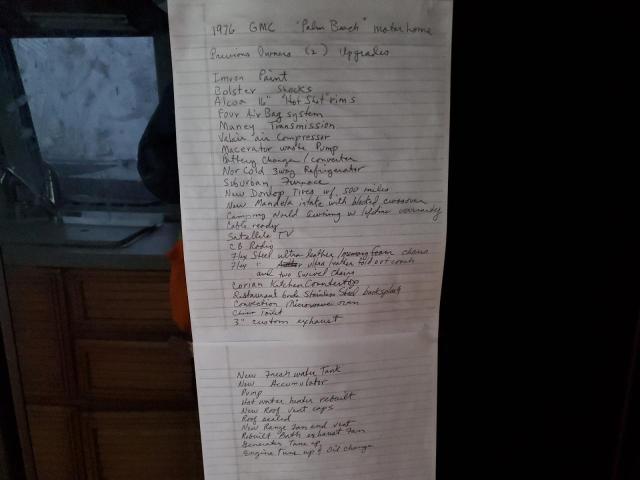 1976 GMC "Palm Beach" motorhome
Previous Owners (2) Upgrades
Imron Paint
Bolster Shocks
Alcoa 16" "Hot Shot" rims
Four Air Bag system
Maney Transmission
Valair air Compressor
Macerator waste Pump
Battery Charger / converter
Nor Cold 3way Refrigerator
Suburban Furnace
New Dunlop Tires w/ 500 miles
New Mandela intake with blocked crossover
Camping World Awning w lifetime warranty
Cable ready
Satellite TV
CB Radio
Flex Steel ultra leather / memory foam chairs
Flex " ultra leather fold out couch
and two swivel chairs
Corian Kitchen Countertop
Restaurant Grade Stainless Steel backsplash
Convection Microwave oven
China Toilet
3" custom exhaust
New Fresh water Tank
New Accumulator
Pump
Hot water heater rebuilt
New Roof vent caps
Roof sealed
New Range fan and vent
Rebuilt Bath exhaust fan
Generator Tune up
Engine Tune up & Oil Change